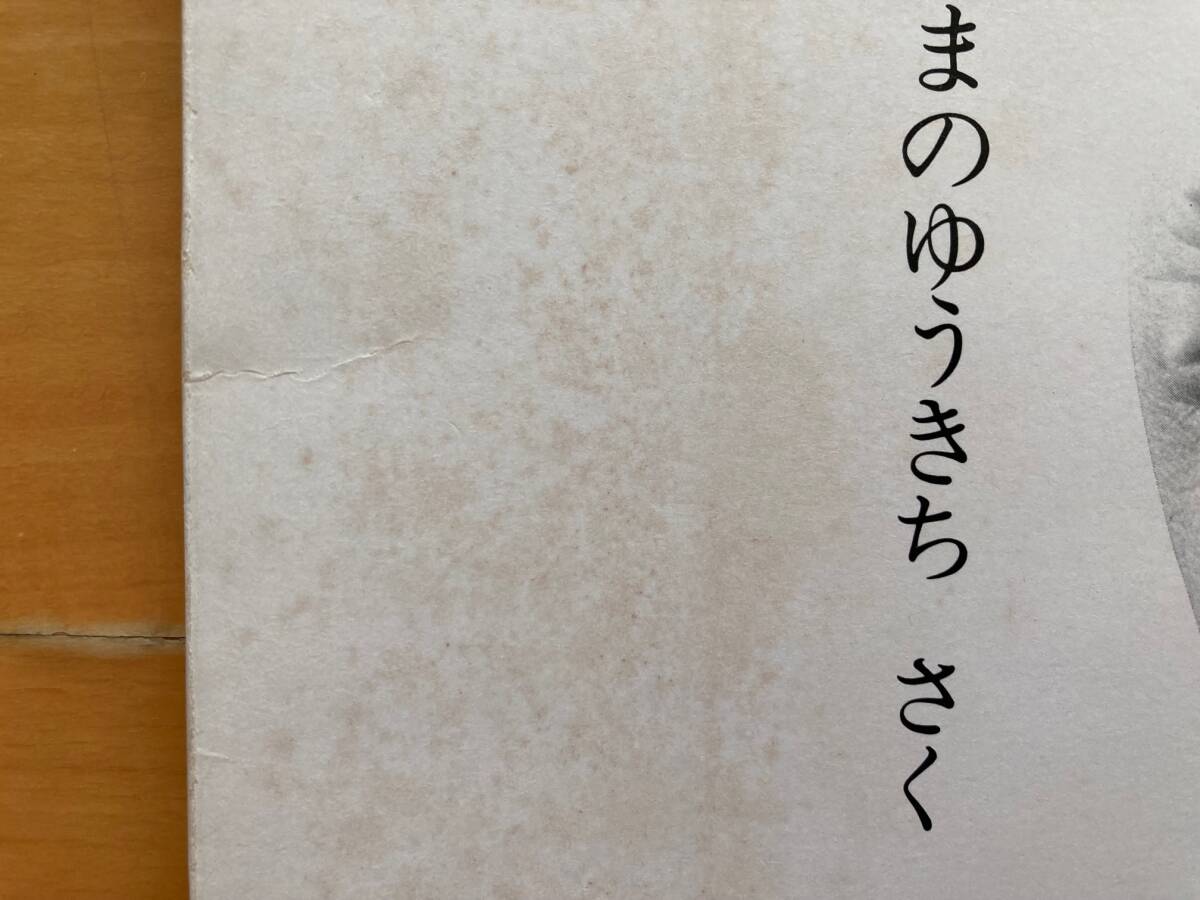 まのゆうきち さく